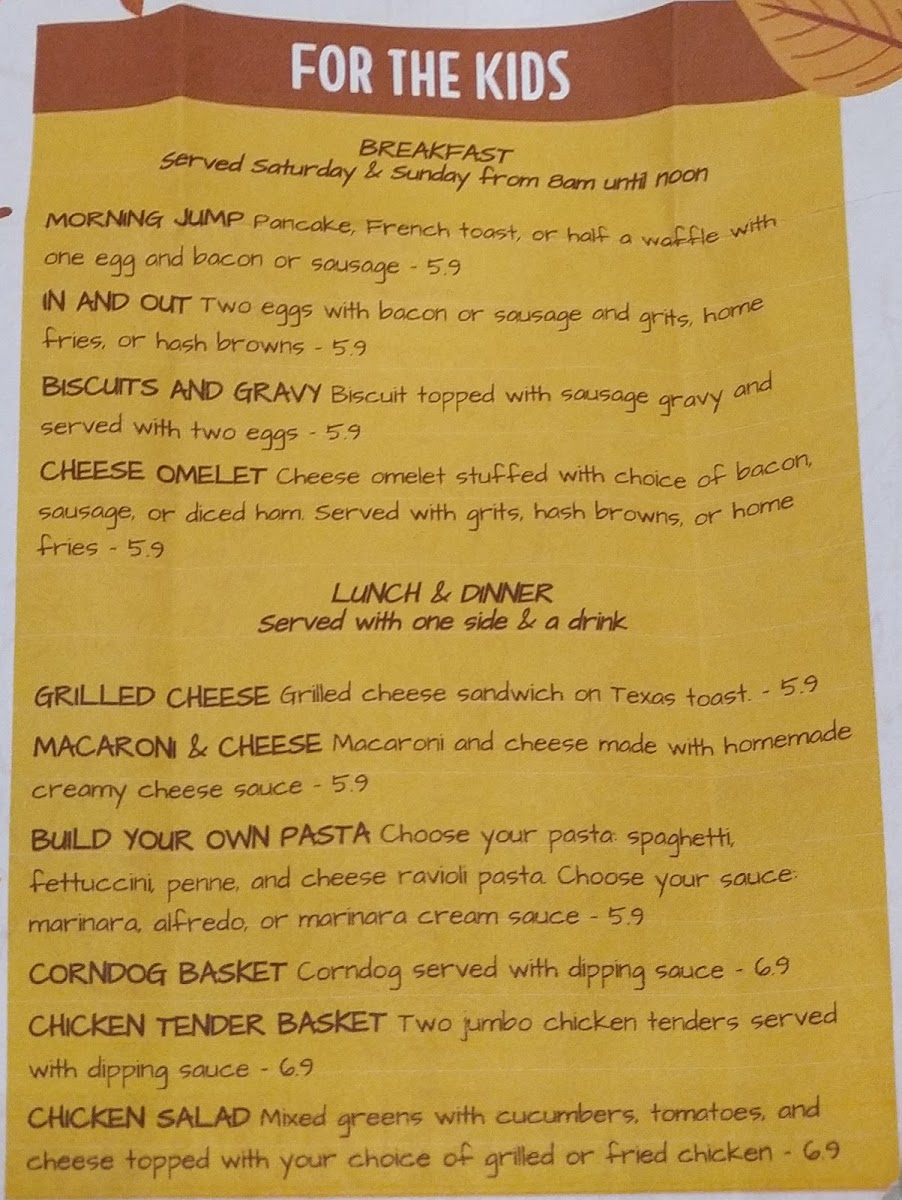 FOR THE KIDS
BREAKFAST
Served Saturday & Sunday from 8am until noon
MORNING JUMP Pancake, French toast, or half a waffle with
one egg and bacon or sausage - 5.9
IN AND OUT Two eggs with bacon or sausage and grits, home
fries, or hash browns - 5.9
BISCUITS AND GRAVY Biscuit topped with sausage gravy and
served with two eggs - 5.9
CHEESE OMELET Cheese omelet stuffed with choice of bacon,
sausage, or diced ham. Served with grits, hash browns, or home
fries - 5.9
LUNCH & DINNER
Served with one side & a drink
GRILLED CHEESE Grilled cheese sandwich on Texas toast. - 5.9
MACARONI & CHEESE Macaroni and cheese made with homemade
creamy cheese sauce - 5.9
BUILD YOUR OWN PASTA Choose your pasta: spaghetti,
fettuccini, penne, and cheese ravioli pasta. Choose your sauce:
marinara, alfredo, or marinara cream sauce - 5.9
CORNDOG BASKET Corndog served with dipping sauce - 6.9
CHICKEN TENDER BASKET Two jumbo chicken tenders served
with dipping sauce - 6.9
CHICKEN SALAD Mixed greens with cucumbers, tomatoes, and
cheese topped with your choice of grilled or fried chicken - 6.9